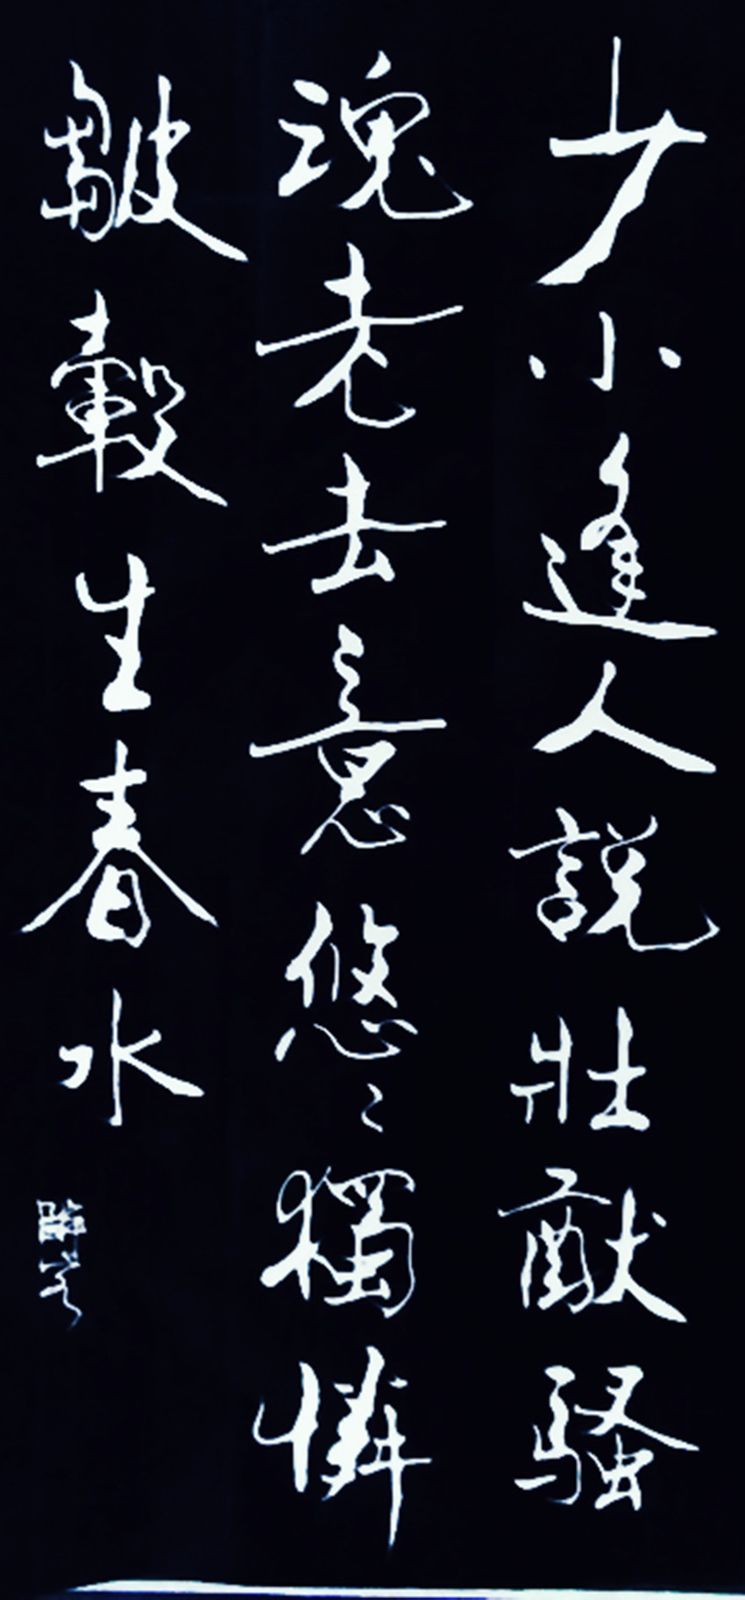 少小逢人說壯猷騷
魂老去意悠〻獨憐
皺轂生春水